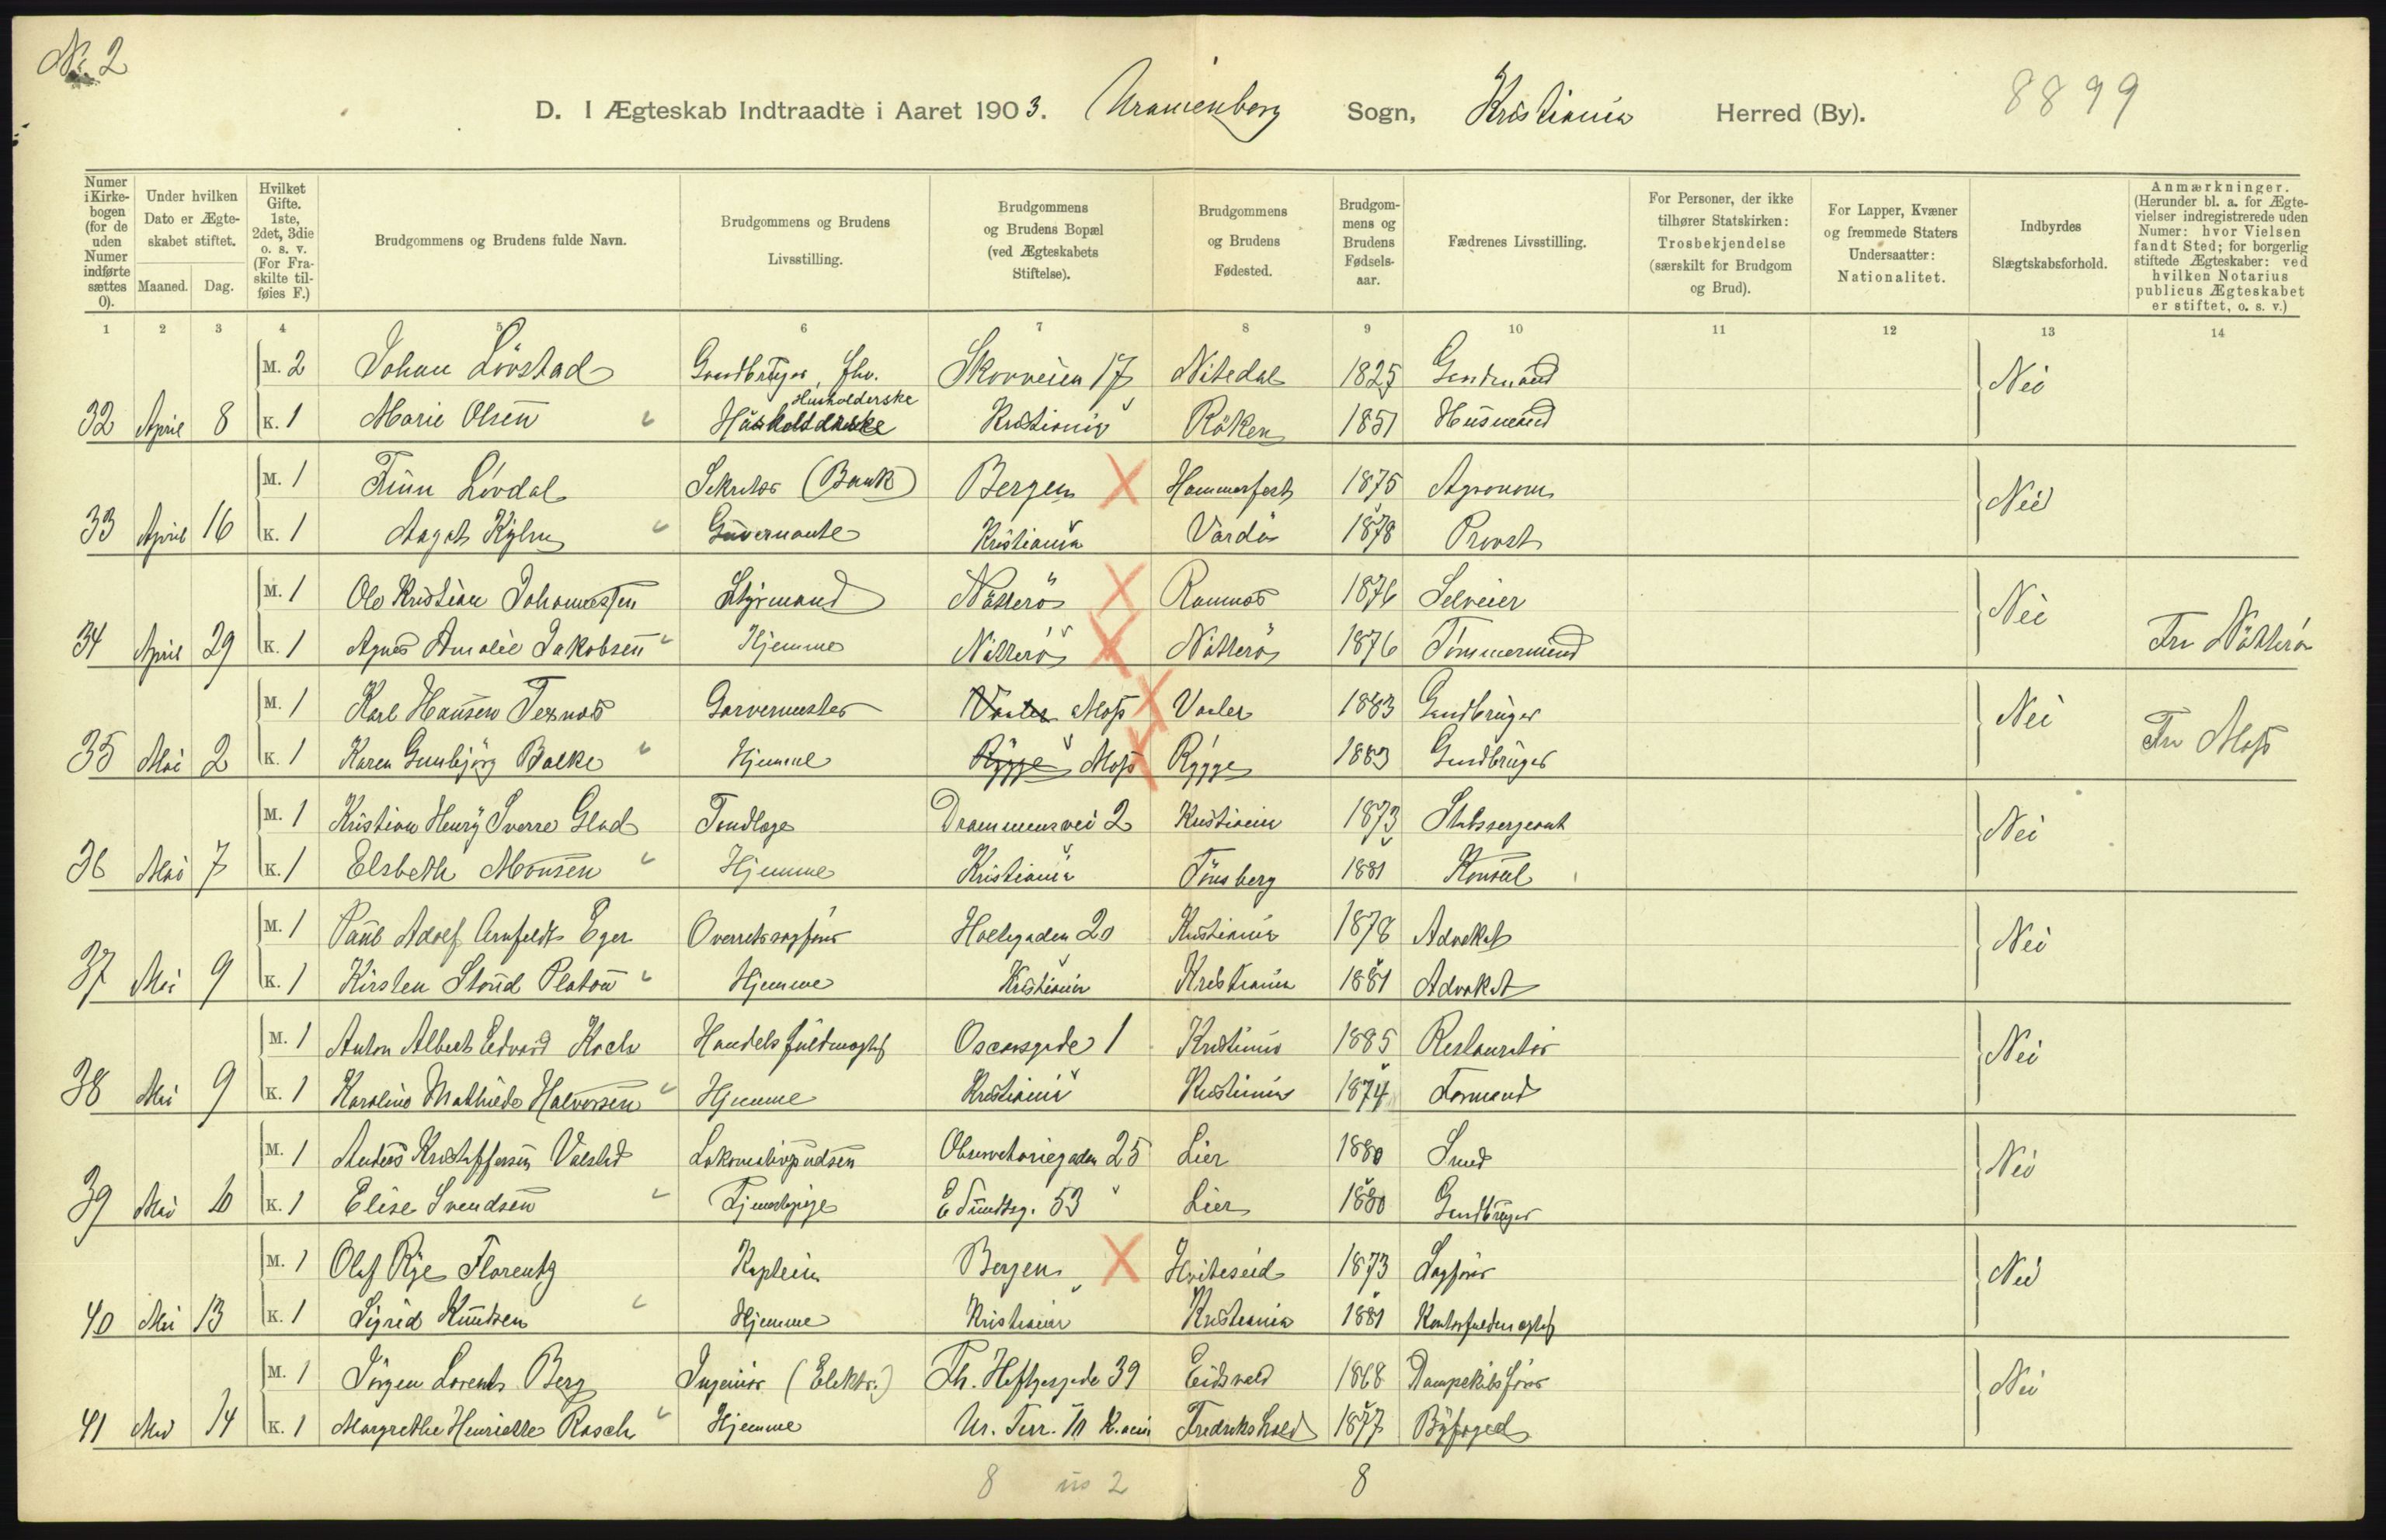 No. 2
8899
D. I Ægteskab Indtraadte i Aaret 1903. Uranienborg Sogn, Kristiania Herred (By).
Numer i Kirkebogen (for de uden Numer indførte sættes 0).
Under hvilken Dato er Ægteskabet stiftet.
Maaned. Dag.
Hvilket Gifte. 1ste, 2det, 3die o. s. v. (For Fraskilte tilføies F.)
Brudgommens og Brudens fulde Navn.
Brudgommens og Brudens Livsstilling.
Brudgommens og Brudens Bopæl (ved Ægteskabets Stiftelse).
Brudgommens og Brudens Fødested.
Brudgommens og Brudens Fødselsaar.
Fædrenes Livsstilling.
For Personer, der ikke tilhører Statskirken: Trosbekjendelse (særskilt for Brudgom og Brud).
For Lapper, Kvæner og fremmede Staters Undersaatter: Nationalitet.
Indbyrdes Slægtskabsforhold.
Anmærkninger. (Herunder bl. a. for Ægtevielser indregistrerede uden Numer: hvor Vielsen fandt Sted; for borgerlig stiftede Ægteskaber: ved hvilken Notarius publicus Ægteskabet er stiftet, o. s. v.)
1 2 3 4 5 6 7 8 9 10 11 12 13 14
M. 2 Johan Lövstad Gaardbruger, fhv. Skovveien 17 Nitedal 1825 Gaardmand Nei
Husholderske
32 April 8 K. 1 Marie Olsen Kristiania Röken 1851 Husmand
M. 1 Finn Lövdal Sekretær (Bank) Bergen Hammerfest 1875 Agronom Nei
33 April 16 K. 1 Aagot Guvernante Kristiania Vardö 1878 Provst
M. 1 Ole Kristian Johannessen Styrmand Nötterö Ramnæs 1876 Selveier Nei
34 April 29 K. 1 Agnes Amalie Jakobsen Hjemme Nötterö Nötterö 1876 Tömmermand Fra Nötterö
M. 1 Karl Hansen Garvermester Vaaler Moss Vaaler 1883 Gaardbruger Nei
35 Mai 2 K. 1 Karen Gunbjörg Bakke Hjemme Rygge Moss Rygge 1883 Gaardbruger Fra Moss
M. 1 Kristian Henry Sverre Glad Tandlæge Drammensvei 2 Kristiania 1873 Stabssergeant Nei
36 Mai 7 K. 1 Elsbeth Monsen Hjemme Kristiania Tönsberg 1881 Konsul
M. 1 Paul Adolf Arnfeldt Eger Overretssagförer Holtegaden 20 Kristiania 1878 Advokat Nei
37 Mai 9 K. 1 Kirsten Stoud Platou Hjemme Kristiania Kristiania 1881 Advokat
M. 1 Anton Albert Edvard Koch Handelsfuldmægtig Oscarsgade 1 Kristiania 1885 Restauratör Nei
38 Mai 9 K. 1 Karoline Mathilde Halvorsen Hjemme Kristiania Kristiania 1874 Formand
M. 1 Anders Kristoffersen Valstad Lokomotivpudser Observatoriegaden 25 Lier 1880 Smed Nei
39 Mai 10 K. 1 Elise Svendsen Tjenestepige E. Sundtsg. 53 Lier 1880 Gaardbruger
M. 1 Olaf Rye Florentz Kaptein Bergen Hviteseid 1873 Sagförer Nei
40 Mai 13 K. 1 Sigrid Knudsen Hjemme Kristiania Kristiania 1881 Kontorfuldmægtig
M. 1 Jörgen Lorentz Berg Ingeniör (Elektr.) Th. Heftyesgade 39 Eidsvold 1868 Dampskibsförer Nei
41 Mai 14 K. 1 Margrethe Henriette Rasch Hjemme Ur. Terr. 10 K.ania Fredrikshald 1877 Byfoged
8 8